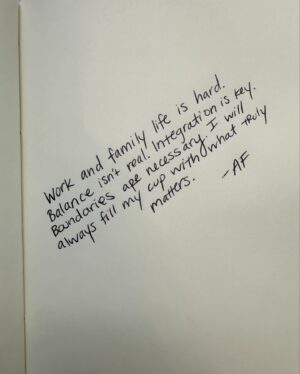 Work and family life is hard.
Balance isn't real. Integration is key.
Boundaries are necessary. I will
always fill my cup with what truly
matters.
-AF